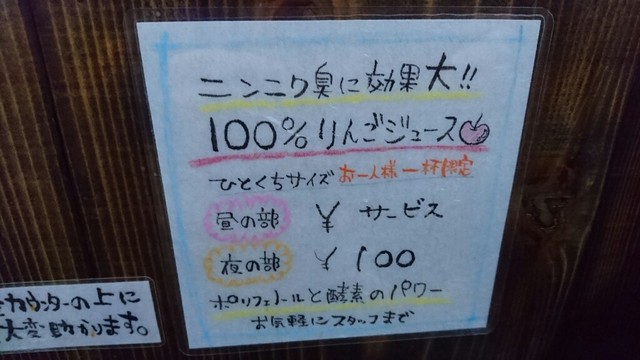 ニンニク臭に効果大!!
100%りんごジュース
ひとくちサイズ お一人様一杯限定
昼の部 ¥ サービス
夜の部 ¥ 100
ポリフェノールと酵素のパワー
お気軽にスタッフまで
カウンターの上に
大変助かります。